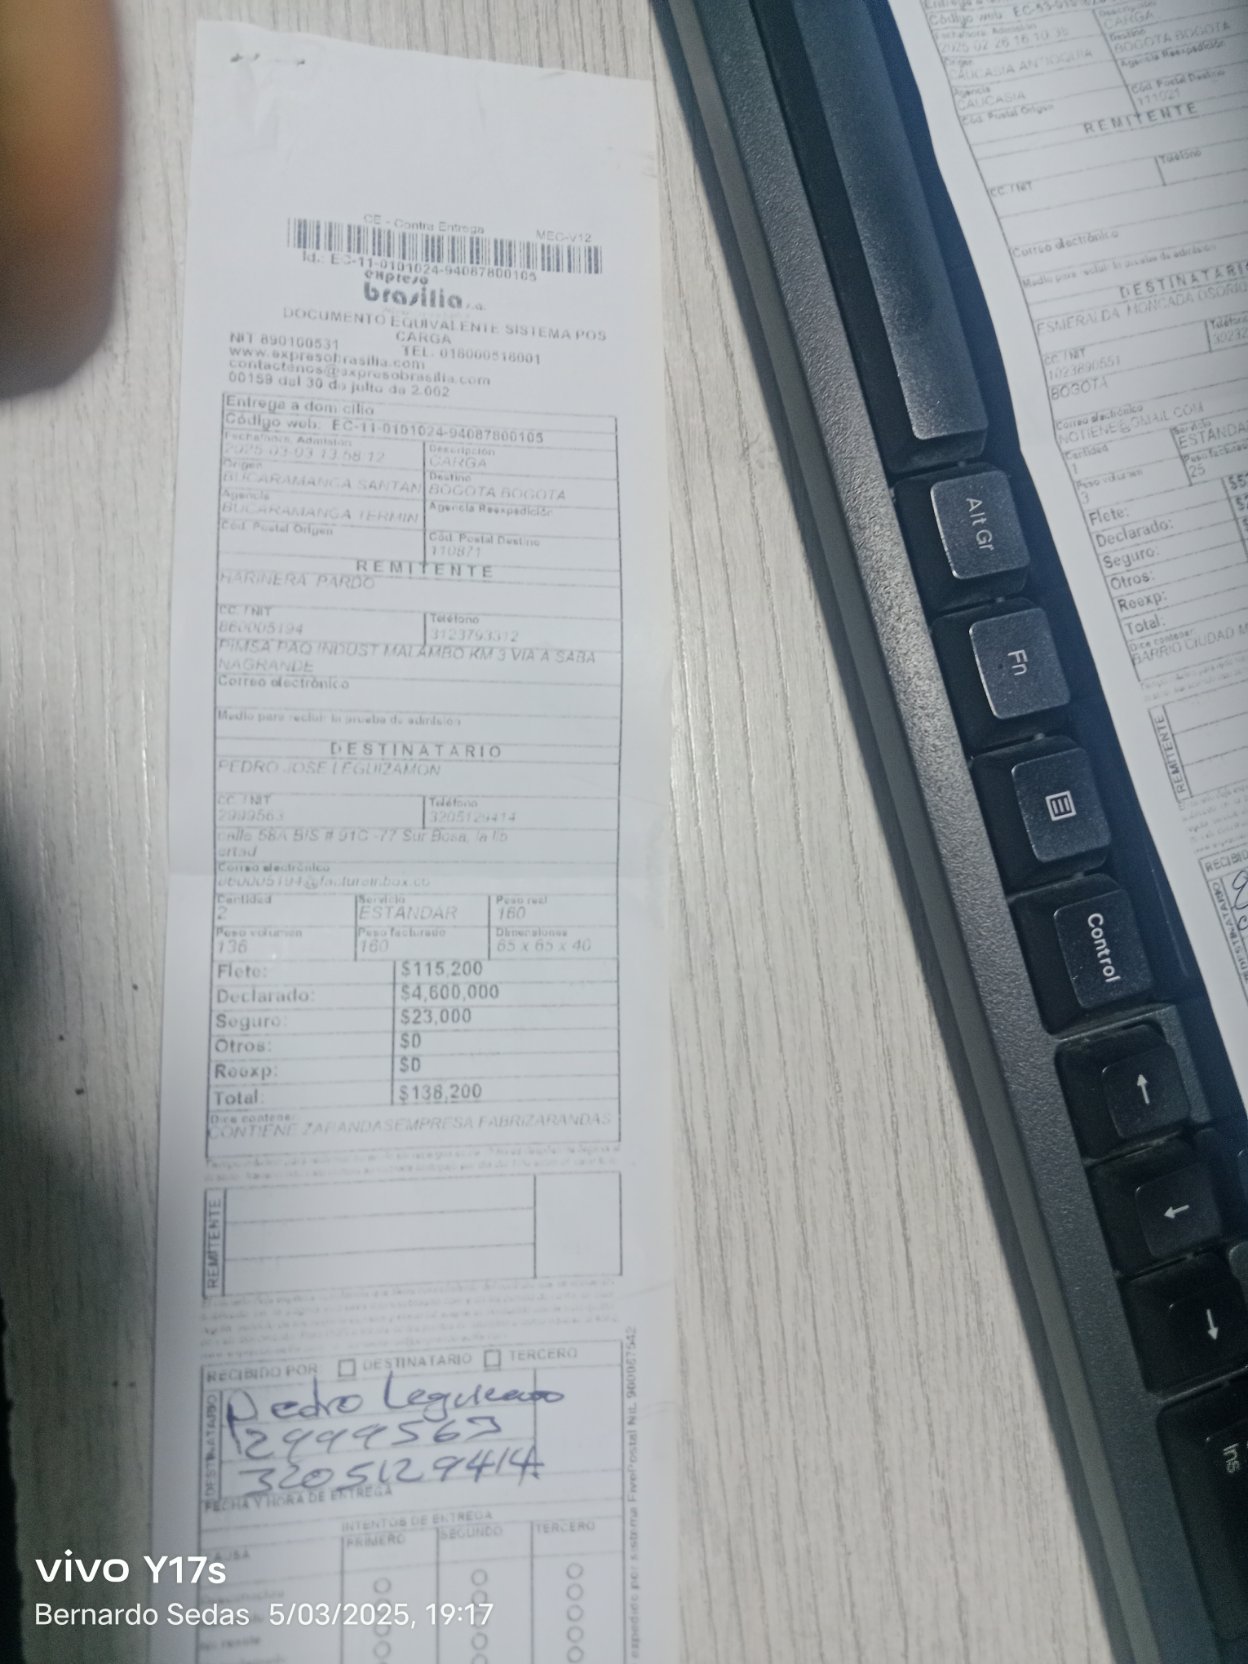 CE - Contra Entrega MEC-V12
Id.: EC-11-0101024-94087800105
expreso
brasilia s.a.
DOCUMENTO EQUIVALENTE SISTEMA POS
CARGA
NIT 890100531 TEL. 018000518001
www.expresobrasilia.com
contactenos@expresobrasilia.com
00159 del 30 de julio de 2.002
Entrega a domicilio
Código web: EC-11-0101024-94087800105
Fecha/hora Admisión Descripción
2025-03-03 13:58:12 CARGA
Origen Destino
BUCARAMANGA SANTAN BOGOTA BOGOTA
Agencia Agencia Reexpedición
BUCARAMANGA TERMIN
Cód. Postal Origen Cód. Postal Destino
110871
REMITENTE
HARINERA PARDO
CC / NIT Teléfono
860005194 3123793312
PIMSA PAQ INDUST MALAMBO KM 3 VIA A SABA
NAGRANDE
Correo electrónico
Medio para recibir la prueba de admisión
DESTINATARIO
PEDRO JOSE LEGUIZAMON
CC / NIT Teléfono
2999563 3205129414
calle 58A BIS # 91C -77 Sur Bosa, la lib
ertad
Correo electrónico
Cantidad Servicio Peso real
2 ESTANDAR 160
Peso volumen Peso facturado Dimensiones
136 160 65 x 65 x 40
Flete: $115,200
Declarado: $4,600,000
Seguro: $23,000
Otros: $0
Reexp: $0
Total: $138,200
Dice contener:
CONTIENE ZARANDASEMPRESA FABRIZARANDAS
REMITENTE
RECIBIDO POR: DESTINATARIO TERCERO
DESTINATARIO
Pedro Leguizamo
2999563
3205129414
FECHA Y HORA DE ENTREGA
INTENTOS DE ENTREGA
PRIMERO SEGUNDO TERCERO
CAUSA
expedido por sistema FivePostal Nit. 900087542
Código web: EC-53-
2025-02-26 16:10:35 CARGA
Origen Destino
CAUCASIA ANTIOQUIA BOGOTA BOGOTA
Agencia Agencia Reexpedición
CAUCASIA
Cód. Postal Origen Cód. Postal Destino
111021
REMITENTE
CC / NIT Teléfono
Correo electrónico
Medio para recibir la prueba de admisión
DESTINATARIO
ESMERALDA MONCADA OSORIO
CC / NIT Teléfono
1023890551
BOGOTA
Correo electrónico
NOTIENE@GMAIL.COM
Cantidad Servicio
1 ESTANDA
Peso volumen Peso facturado
3 25
Flete:
Declarado:
Seguro:
Otros:
Reexp:
Total:
Dice contener:
BARRIO CIUDAD
REMITENTE
RECIBIDO
Alt Gr
Fn
Control
↑
←
↓
Ins
vivo Y17s
Bernardo Sedas 5/03/2025, 19:17